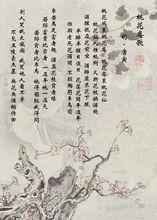 桃花庵歌
明 唐寅
桃花塢裏桃花庵 桃花庵裏桃花仙
桃花仙人種桃樹 又摘桃花換酒錢
酒醒只在花前坐 酒醉還來花下眠
半醉半醒日復日 花落花開年復年
但願老死花酒間 不願鞠躬車馬前
車塵馬足貴者趣 酒盞花枝貧者緣
若將富貴比貧者 一在平地一在天
若將貧賤比車馬 他得驅馳我得閒
別人笑我忒瘋癲 我笑他人看不穿
不見五陵豪傑墓 無花無酒鋤作田